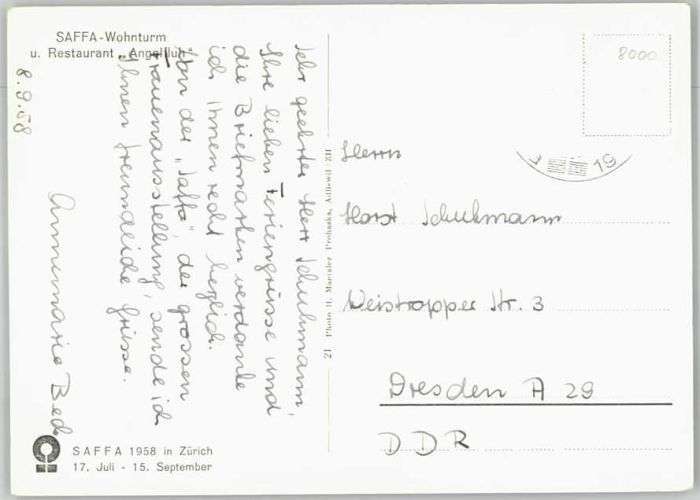 SAFFA-Wohnturm
u. Restaurant „Angelfluh"
8.9.58
Sehr geehrter Herr Schuhmann,
Ihre lieben Feriengrüsse und
die Briefmarken verdanke
ich Ihnen recht herzlich.
Von der „Saffa", der grossen
Frauenausstellung, sende ich
Ihnen freundliche Grüsse.
Annemarie
SAFFA 1958 in Zürich
17. Juli - 15. September
Photo H.
8000
19
Herrn
Horst Schuhmann
Weistropper Str. 3
Dresden A 29
DDR